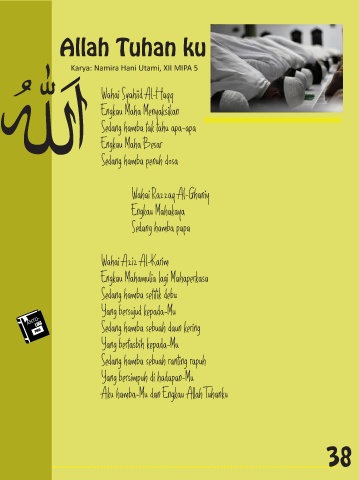 Allah Tuhan ku
Karya: Namira Hani Utami, XII MIPA 5
الله
Wahai Syahiid Al-Haqq
Engkau Maha Menyaksikan
Sedang hamba tak tahu apa-apa
Engkau Maha Besar
Sedang hamba penuh dosa
Wahai Razzaq Al-Ghaniy
Engkau Mahakaya
Sedang hamba papa
Wahai Aziz Al-Karim
Engkau Mahamulia lagi Mahaperkasa
Sedang hamba setitik debu
Yang bersujud kepada-Mu
Sedang hamba sebuah daun kering
Yang bertasbih kepada-Mu
Sedang hamba sebuah ranting rapuh
Yang bersimpuh di hadapan-Mu
Aku hamba-Mu dan Engkau Allah Tuhanku
38